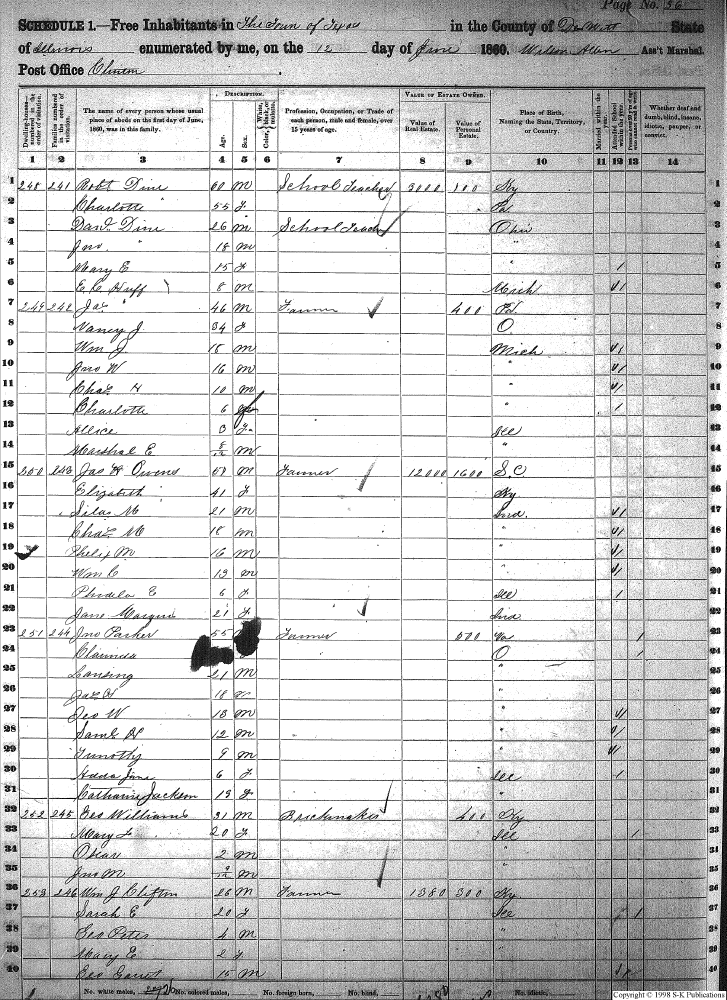 Page No. 36
SCHEDULE 1.—Free Inhabitants in The Town of Texas in the County of De Witt State
of Illinois enumerated by me, on the 12 day of June 1860. Wilson Allen Ass't Marshal.
Post Office Clinton
Dwelling-houses—numbered in the order of visitation.
Families numbered in the order of visitation.
The name of every person whose usual place of abode on the first day of June, 1860, was in this family.
DESCRIPTION.
Age.
Sex.
Color, White, black, or mulatto.
Profession, Occupation, or Trade of each person, male and female, over 15 years of age.
VALUE OF ESTATE OWNED.
Value of Real Estate.
Value of Personal Estate.
Place of Birth, Naming the State, Territory, or Country.
Married within the year.
Attended School within the year.
Whether deaf and dumb, blind, insane, idiotic, pauper, or convict.
1 2 3 4 5 6 7 8 9 10 11 12 13 14
1 248 241 Robt Dine 60 M School Teacher 3000 100 Ky 1
2 Charlotte " 55 F Pd. 2
3 Danl. Dine 26 M School Teach Ohio 3
4 Jno. " 18 M " 4
5 Mary E 15 F " / 5
6 E. C. Huff 8 M Mich 6
7 249 242 Jas " 46 M Farmer 400 Pd. 7
8 Nancy J. 34 F O. 8
9 Wm J 18 M Mich 9
10 Jno W 16 M " 10
11 Chas H 10 M " 11
12 Charlotte 6 " / 12
13 Allice 3 F Ill 13
14 Marshal E 8/12 M " 14
15 250 243 Jas H Owens M Farmer 12000 1600 S.C 15
16 Elizabeth 41 F Ky 16
17 Silas M 21 M Ind. 17
18 Chas M 18 M " 18
19 Philip M 16 M " 19
20 Wm C 13 M " 20
21 E 6 F Ill / 21
22 Jane 21 F Ind 22
23 251 244 Jno Parker 55 Farmer 500 Va / 23
24 Clarinda O / 24
25 Lansing 21 M " 25
26 Jas H 18 M " 26
27 Geo W 13 M " 27
28 Saml H 12 M " 28
29 Timothy 9 M " 29
30 Adda Jane 6 F Ill / 30
31 Catharine Jackson 19 F " 31
32 252 245 Geo Williams 31 M Brickmaker 400 Ky 32
33 Mary F 20 F Ill / 33
34 Oscar 2 M " 34
35 Jno M 9/12 M " 35
36 253 246 Wm J Clifton 26 M Farmer 1380 300 Ky 36
37 Sarah E 20 F Ill 37
38 Geo Peter 4 M 38
39 Mary E 2 F 39
40 Geo 15 M 40
No. white males, No. colored males, No. foreign born, No. blind, No. idiotic,
Copyright © 1998 S-K Publications